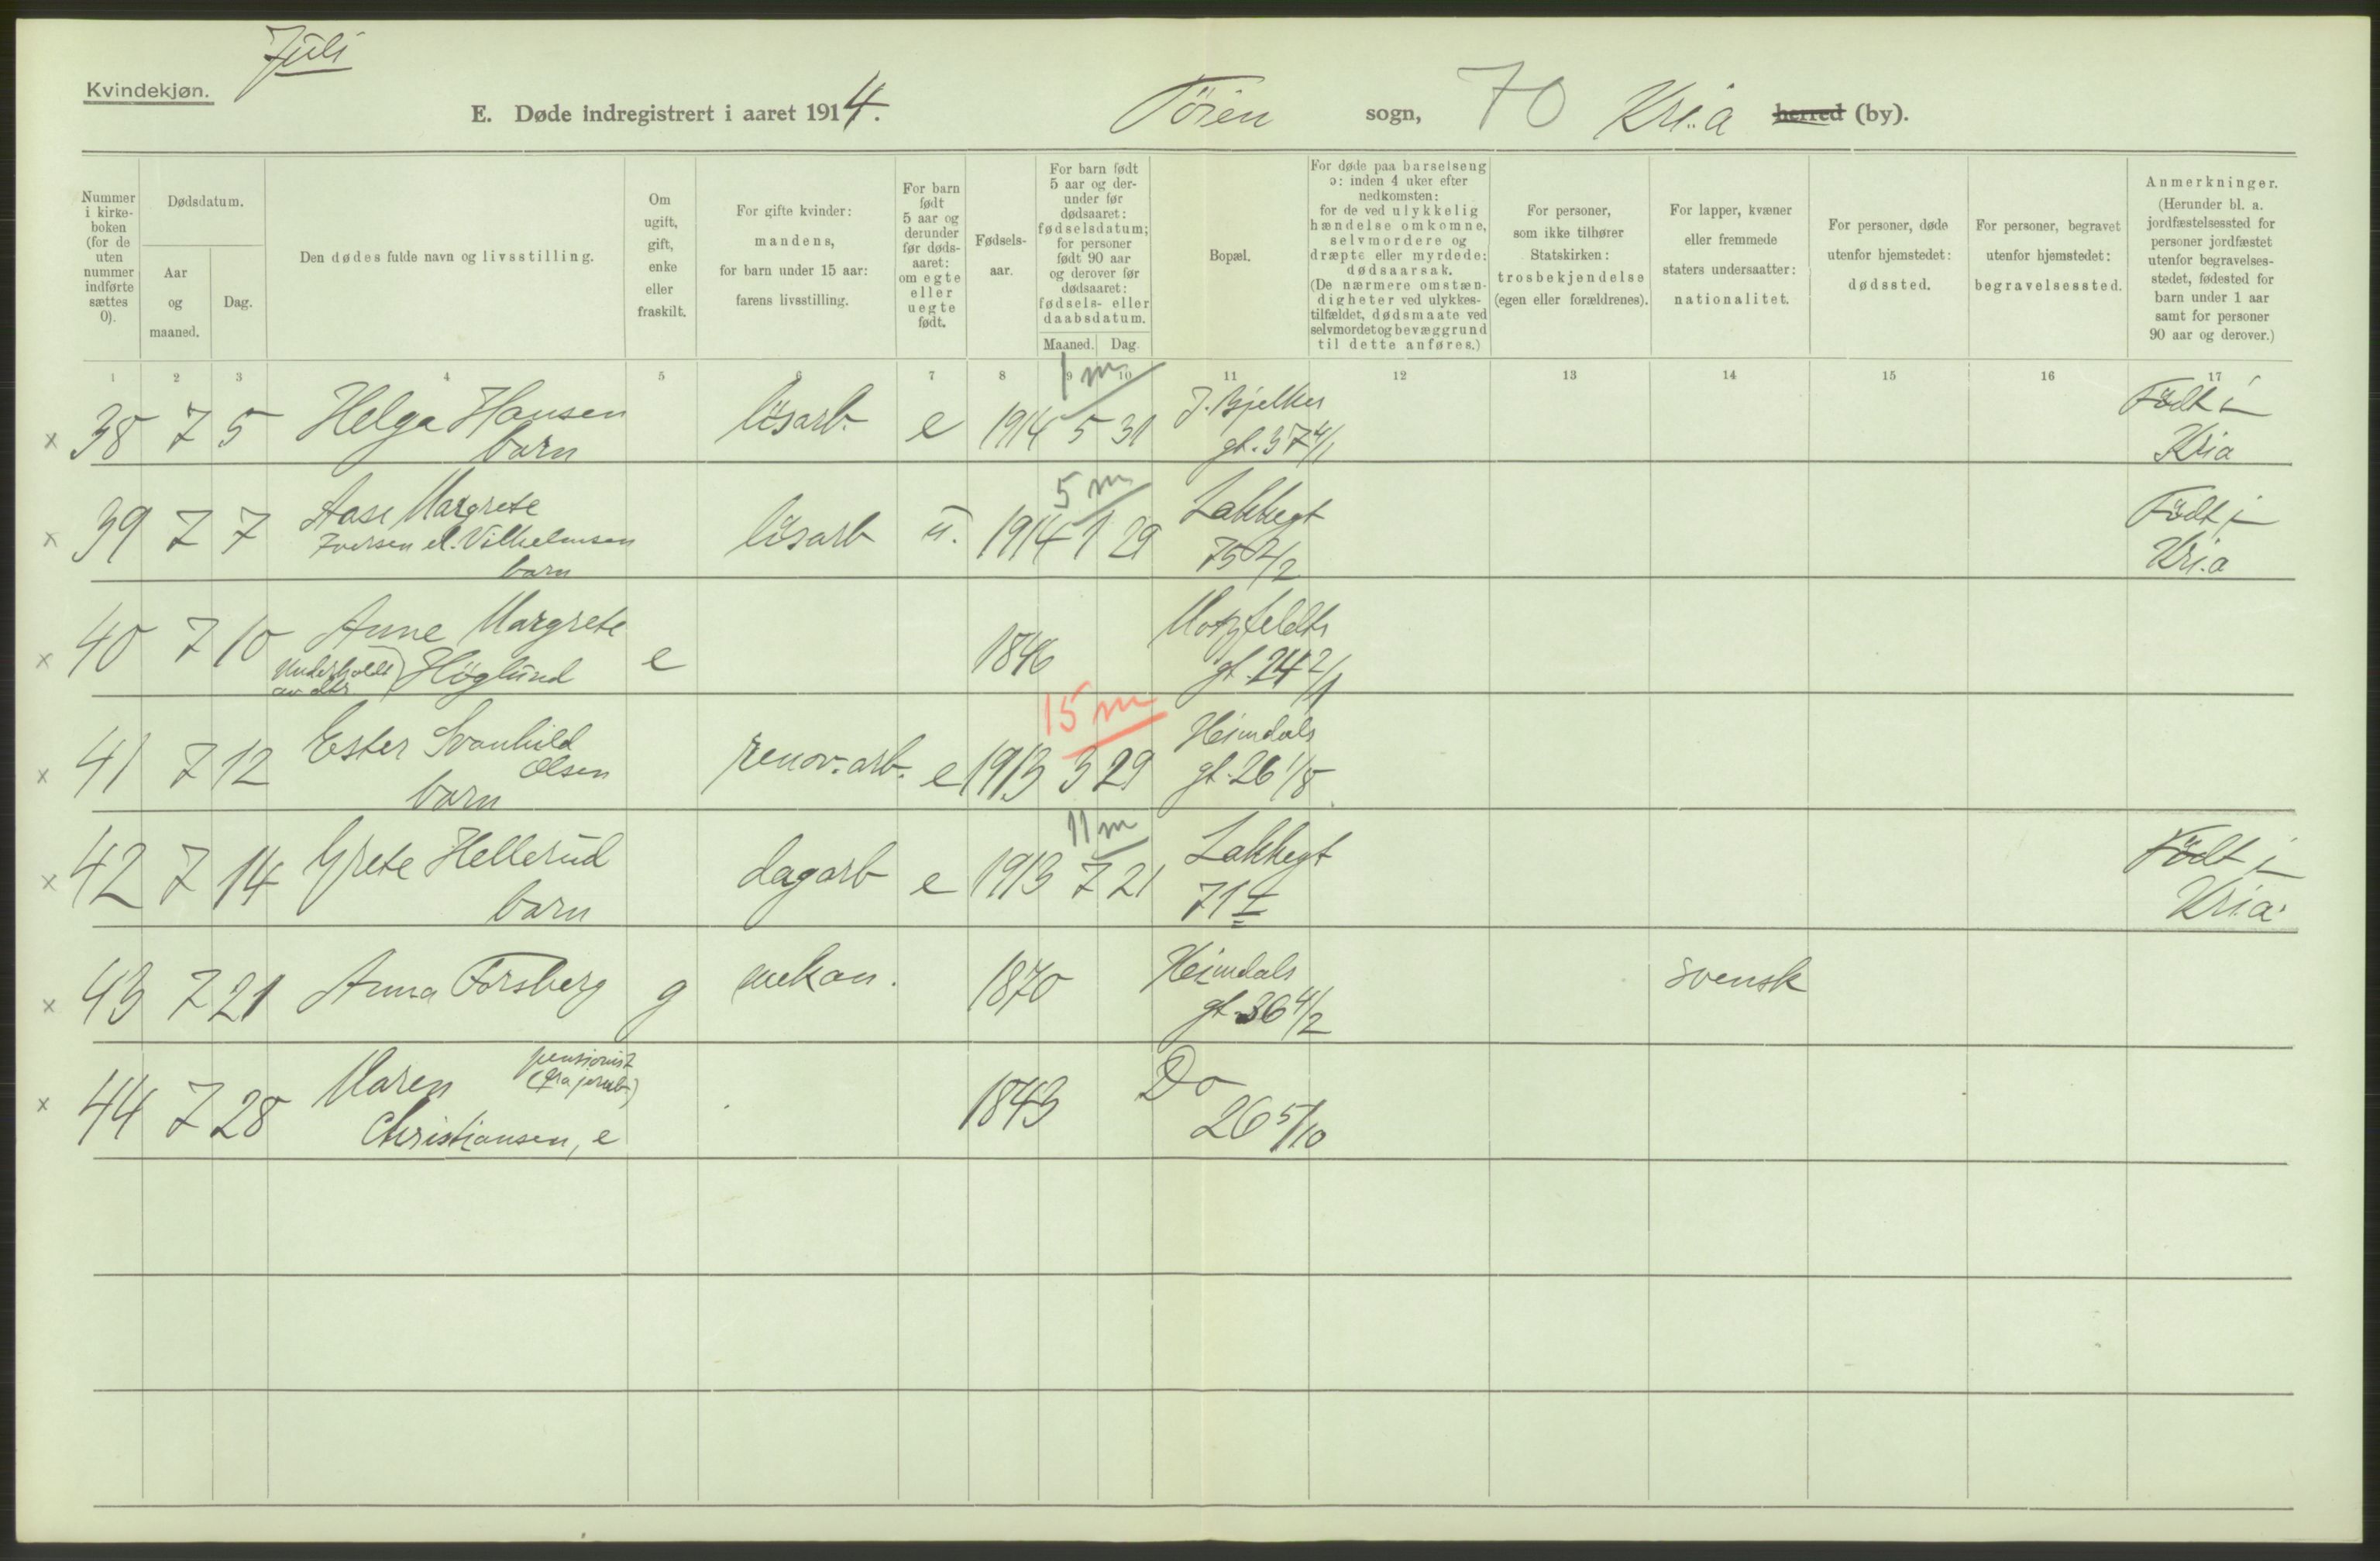 Juli
Kvindekjøn.
E. Døde indregistrert i aaret 1914. Töien sogn, 70 Kri.a herred (by).
Nummer i kirkeboken (for de uten nummer indførte sættes 0).
Dødsdatum.
Aar og maaned.
Dag.
Den dødes fulde navn og livsstilling.
Om ugift, gift, enke eller fraskilt.
For gifte kvinder: mandens, for barn under 15 aar: farens livsstilling.
For barn født 5 aar og derunder før dødsaaret: om egte eller uegte født.
Fødselsaar.
For barn født 5 aar og derunder før dødsaaret: fødselsdatum; for personer født 90 aar og derover før dødsaaret: fødsels- eller daabsdatum.
Maaned. Dag.
Bopæl.
For døde paa barselseng ɔ: inden 4 uker efter nedkomsten: for de ved ulykkelig hændelse omkomne, selvmordere og dræpte eller myrdede: dødsaarsak. (De nærmere omstændigheter ved ulykkestilfældet, dødsmaate ved selvmordet og bevæggrund til dette anføres.)
For personer, som ikke tilhører Statskirken: trosbekjendelse (egen eller forældrenes).
For lapper, kvæner eller fremmede staters undersaatter: nationalitet.
For personer, døde utenfor hjemstedet: dødssted.
For personer, begravet utenfor hjemstedet: begravelsessted.
Anmerkninger. (Herunder bl. a. jordfæstelsessted for personer jordfæstet utenfor begravelsesstedet, fødested for barn under 1 aar samt for personer 90 aar og derover.)
1 2 3 4 5 6 7 8 9 10 11 12 13 14 15 16 17
1 m
x 38 7 5 Helga Hansen lösarb. e 1914 5 31 J. Bjelkes Födt i
barn gt. 37 4/1 Kria
5 m
x 39 7 7 Aase Margrete lösarb ü. 1914 1 29 Lakkegt Födt i
Iversen el. Vilhelmsen 75 2/2 Kri.a
barn
x 40 7 10 Anne Margrete e 1846 Motzfeldts
Underholdt av dtr.) Höglund gt. 24 2/1
15 m
x 41 7 12 Ester Svanhild renov.arb. e 1913 3 29 Heimdals
Olsen gt. 26 1/8
barn
11 m
x 42 7 14 Grete Hellerud dagarb e 1913 7 21 Lakkegt Födt i
barn 71 Kri.a.
x 43 7 21 Anna Forsberg g mekan. 1870 Heimdals svensk
gt. 36 4/2
x 44 7 28 Maren pensjonist 1843 Do
Christiansen, e 26 5/10